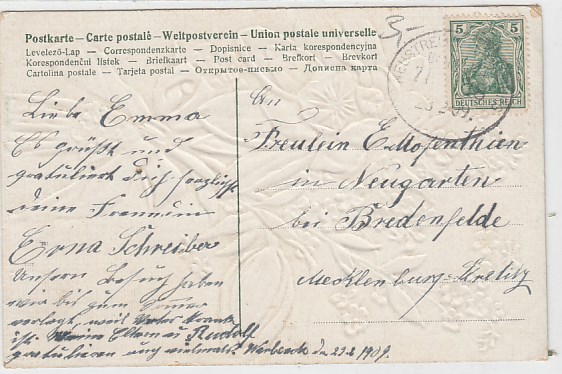 Postkarte – Carte postale – Weltpostverein – Union postale universelle
Levelező-Lap — Correspondenzkarte — Dopisnice — Karta korespondencyjna
Korespondenční lístek — Briefkaart — Post card — Brefkort — Brevkort
Cartolina postale — Tarjeta postal — Открытое письмо — Дописна карта
5 5
DEUTSCHES REICH
NEUSTRE
23.2.09.
Liebe Emma
Es grüßt und
gratuliert dich herzlichst
deine Freundin
Erna Schreiber
Unsern Besuch haben
wir bis zum Sommer
verlegt, weil Vater krank
ist. Meine Eltern u Rudolf
gratulieren auch vielmals. 23.2 1909.
An
Freulein E.
in Neugarten
bei Bredenfelde
Mecklenburg-Strelitz